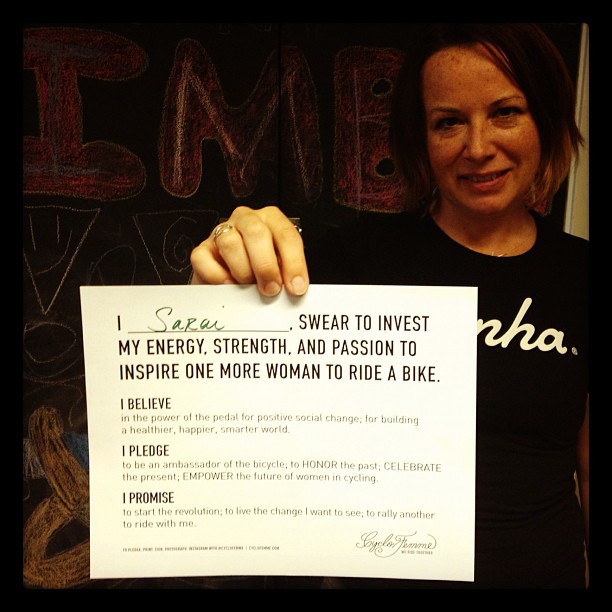 IMB
nha.
I Sarai, SWEAR TO INVEST
MY ENERGY, STRENGTH, AND PASSION TO
INSPIRE ONE MORE WOMAN TO RIDE A BIKE.
I BELIEVE
in the power of the pedal for positive social change; for building
a healthier, happier, smarter world.
I PLEDGE
to be an ambassador of the bicycle; to HONOR the past; CELEBRATE
the present; EMPOWER the future of women in cycling.
I PROMISE
to start the revolution; to live the change I want to see; to rally another
to ride with me.
CycloFemme
WE RIDE TOGETHER
TO PLEDGE: PRINT. SIGN. PHOTOGRAPH. INSTAGRAM WITH #CYCLOFEMME | CYCLOFEMME.COM